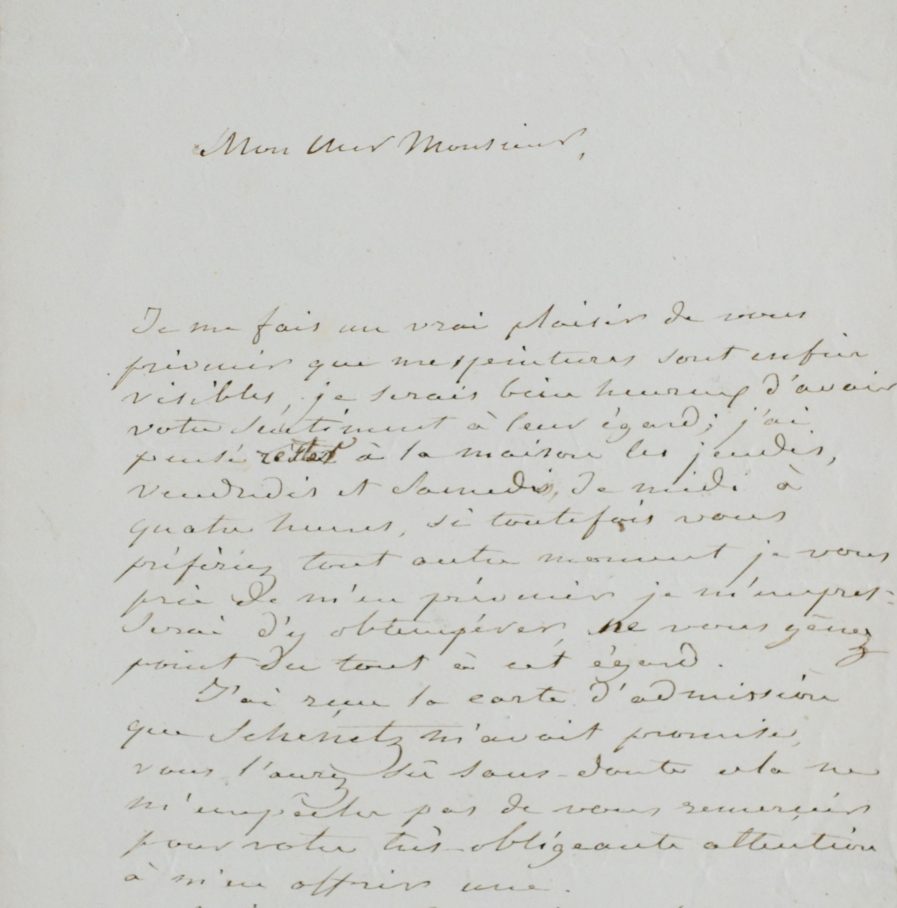 Mon cher Monsieur,
Je me fais un vrai plaisir de vous
prévenir que mes peintures sont enfin
visibles, je serais bien heureux d'avoir
votre sentiment à leur égard; j'ai
pensé rester à la maison les jeudis,
vendredis et Samedis, de midi à
quatre heures, si toutefois vous
préfériez tout autre moment je vous
prie de m'en prévenir je m'empres-
serai d'y obtempérer, ne vous gênez
point du tout à cet égard.
J'ai reçu la carte d'admission
que Schenetz m'avait promise,
vous l'aurez sû sans-doute cela ne
m'empêche pas de vous remerçier
pour votre très-obligeante attention
à m'en offrir une.